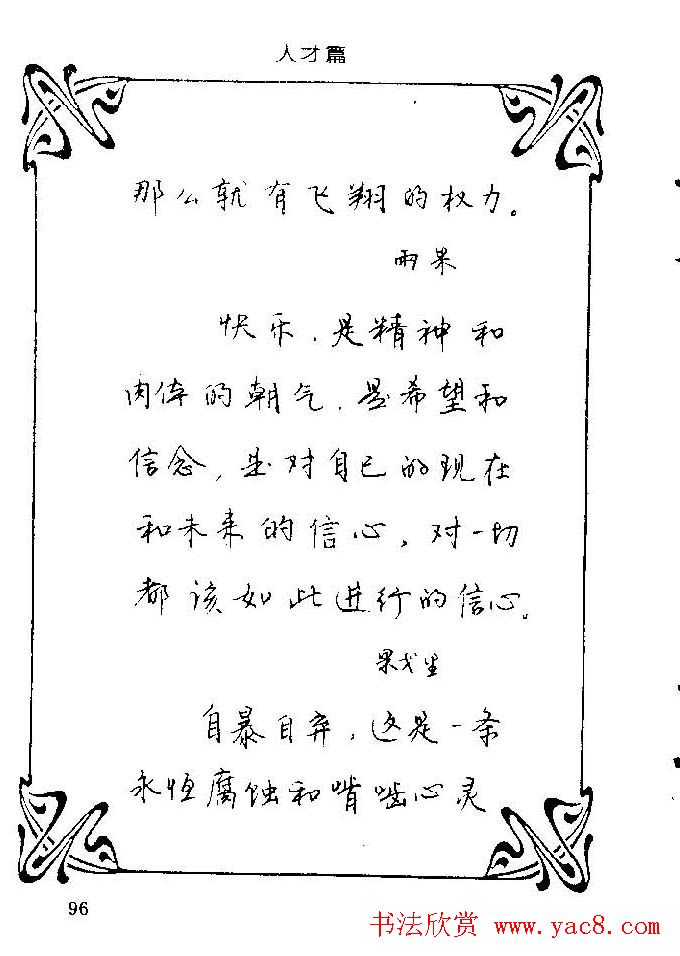 人才篇
那么就有飞翔的权力。
雨果
快乐，是精神和
肉体的朝气，是希望和
信念，是对自已的现在
和未来的信心，对一切
都该如此进行的信心。
果戈里
自暴自弃，这是一条
永恒腐蚀和啃啮心灵
96
书法欣赏 www.yac8.com